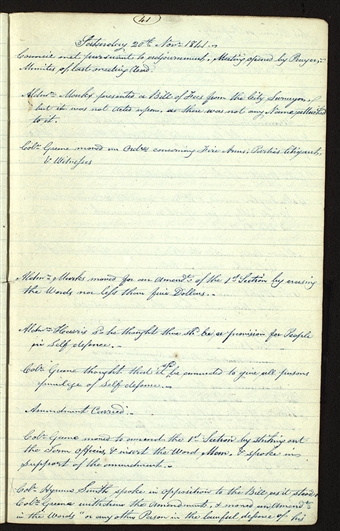 41
Saturday 20th Novr 1841.
Council met pursuant to adjournment. Meeting opened by Prayer.
Minutes of last meeting read.
Aldmn Marks presented a Bill of Fees from the City Surveyor,
but it was not acted upon, as there was not any Name attached
to it.
Colr Greene moved an Ordce concerning Fire Arms,
& Witnesses
Aldmn Marks moved for an amendt of the 1st Section by erasing
the Words nor less than five Dollars.
Aldmn Harris sd he thought there shd be a provision for People
in Self defence.
Colr Greene thought that it be amended to give all persons
privilege of Self defence.
Amendment Carried.
Colr Greene moved to amend the 1st Section by striking out
the Term Officer, & insert the Word Man, & spoke in
support of the amendment.
Colr Hyrum Smith spoke in opposition to the Bill as it stood
Colr Greene withdrew the Amendment, & moved an Amendt
in the Words "or any other Person in the lawful defence of his